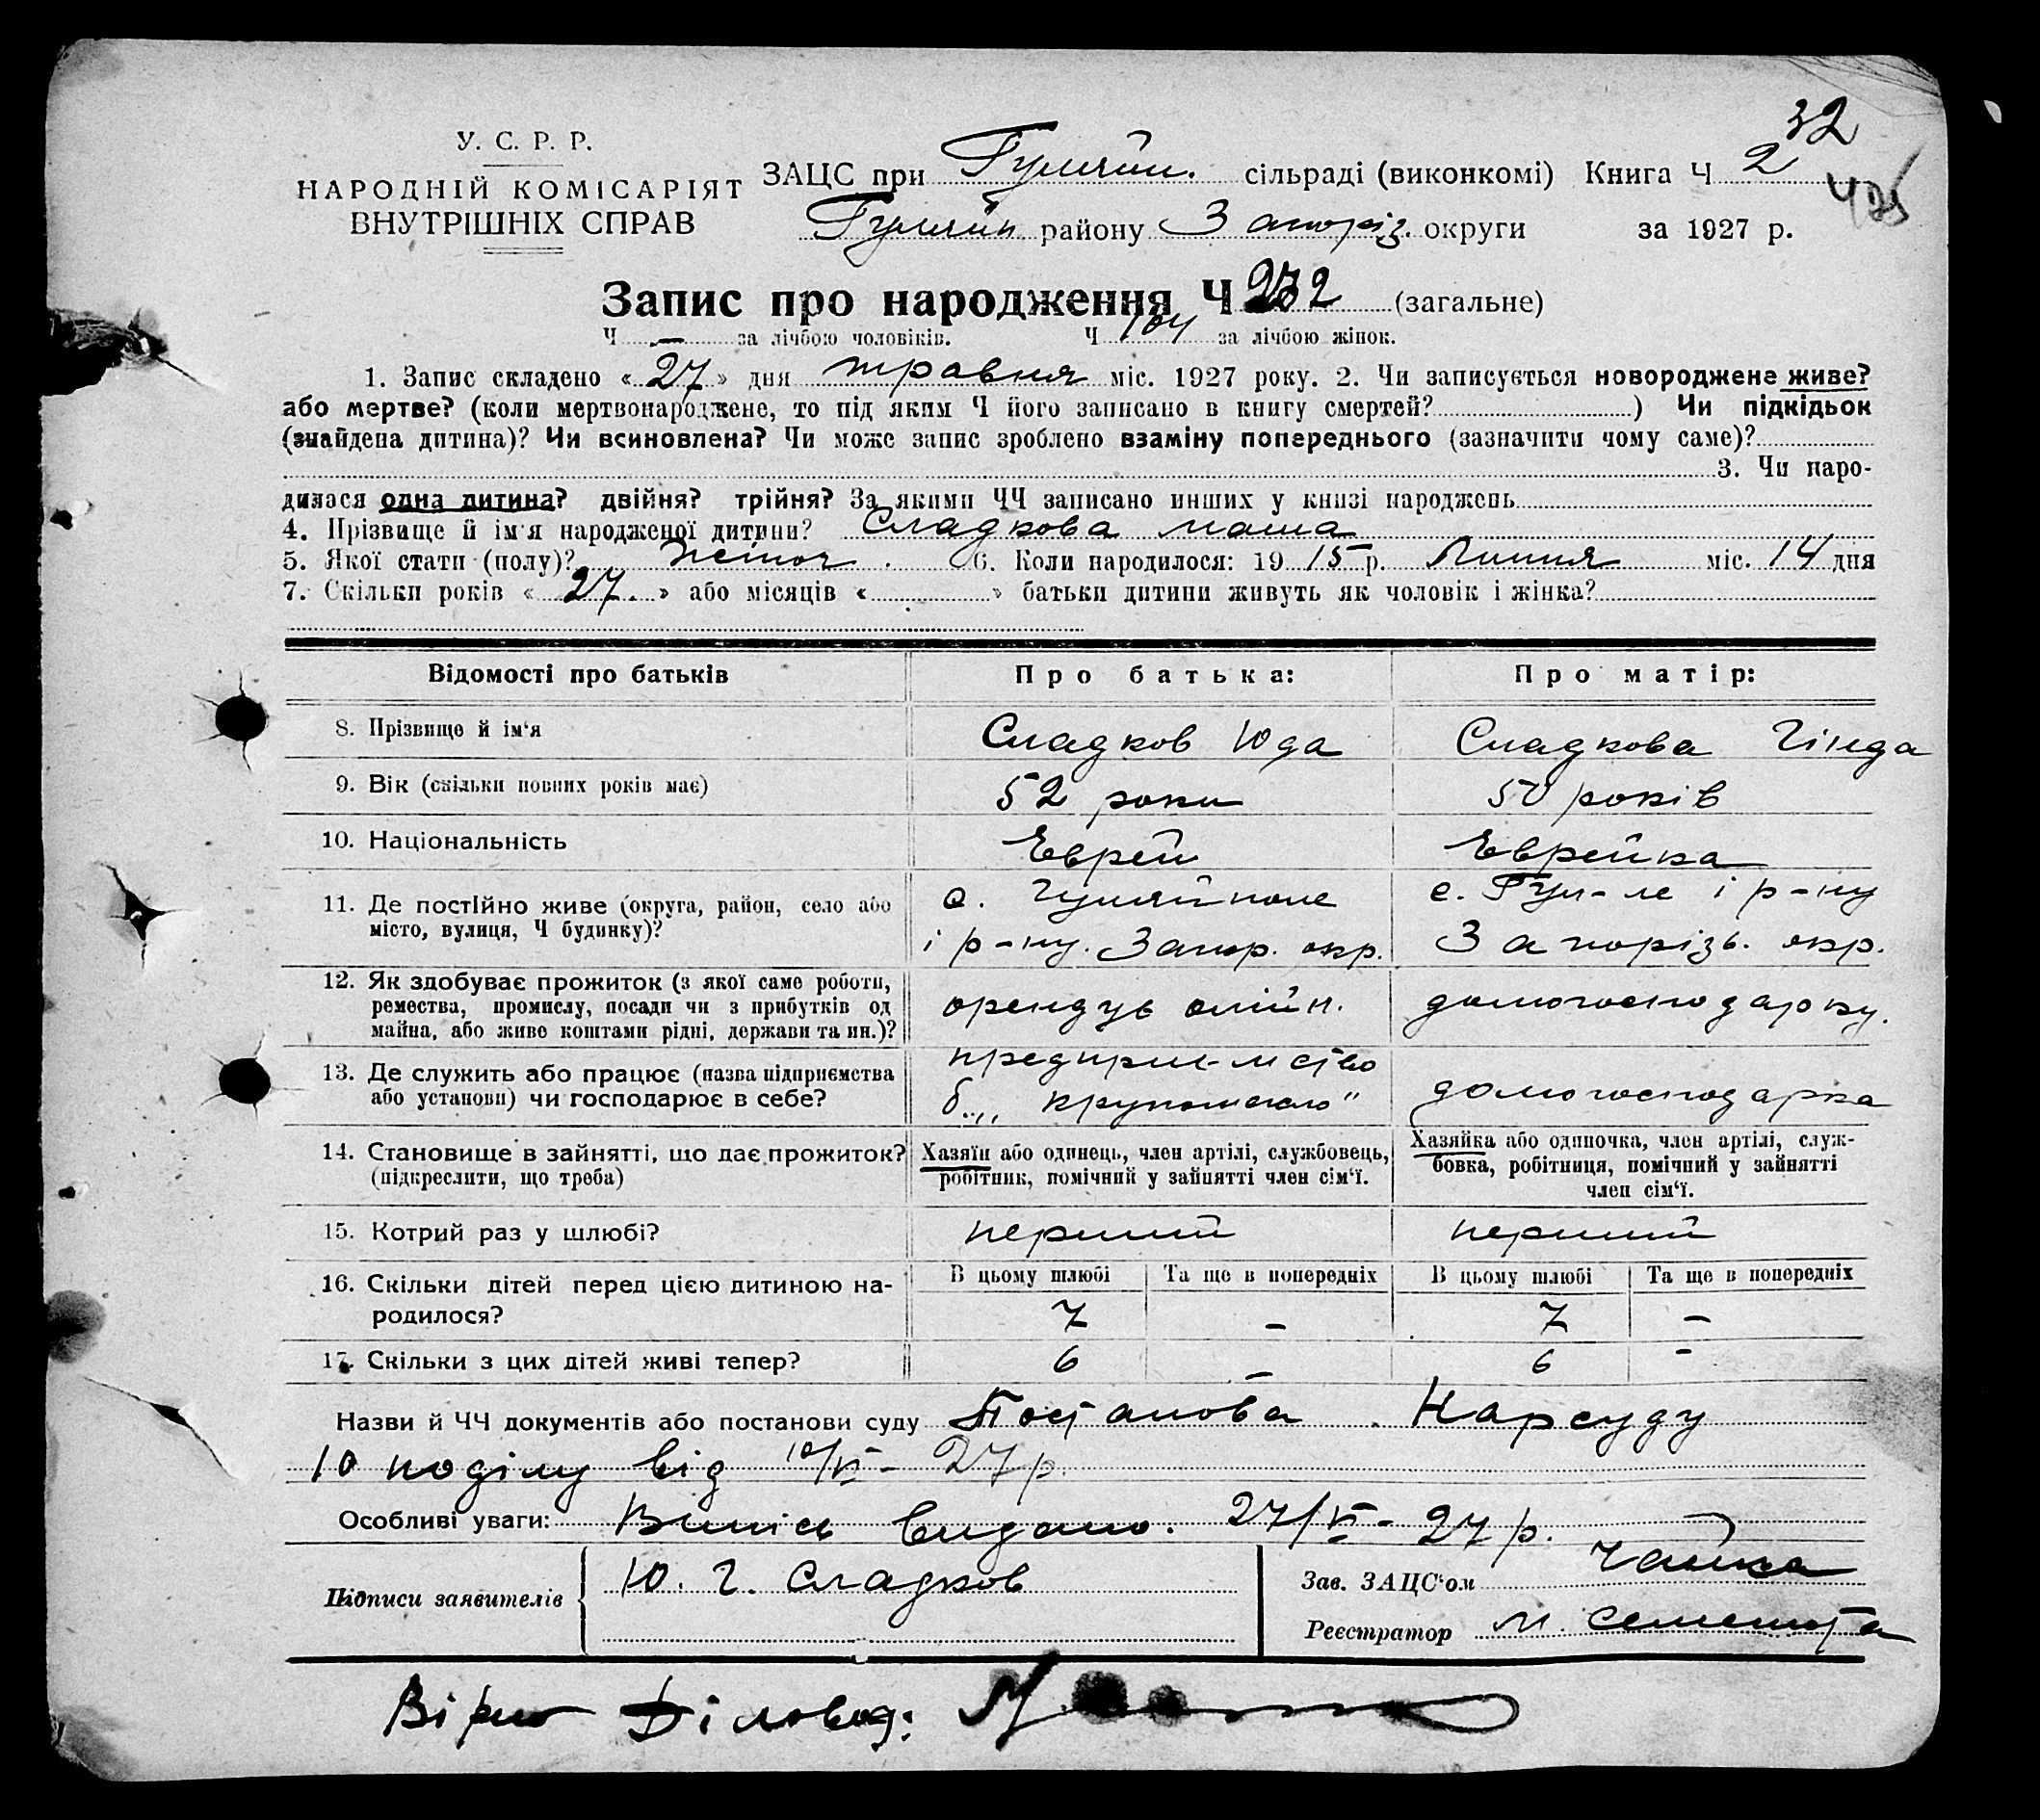 32
У. С. Р. Р.
НАРОДНІЙ КОМІСАРІЯТ
ВНУТРІШНІХ СПРАВ
ЗАЦС при Гуляйп. сільраді (виконкомі) Книга Ч 2
425
Гуляйп. району Запоріз. округи за 1927 р.
Запис про народження Ч 232 (загальне)
Ч — за лічбою чоловіків. Ч 104 за лічбою жінок.
1. Запис складено « 27 » дня травня міс. 1927 року. 2. Чи записується новороджене живе?
або мертве? (коли мертвонароджене, то під яким Ч його записано в книгу смертей? ) Чи підкідьок
(знайдена дитина)? Чи всиновлена? Чи може запис зроблено взаміну попереднього (зазначити чому саме)?
3. Чи наро-
дилася одна дитина? двійня? трійня? За якими ЧЧ записано инших у книзі народжень
4. Прізвище й ім'я народженої дитини? Сладкова Маша
5. Якої стати (полу)? Жіноч. 6. Коли народилося: 19 15 р. Липня міс. 14 дня
7. Скільки років « 27. » або місяців « » батьки дитини живуть як чоловік і жінка?
Відомості про батьків Про батька: Про матір:
8. Прізвище й ім‘я Сладков Юда Сладкова Гінда
9. Вік (скільки повних років має) 52 роки 50 років
10. Національність Еврей Еврейка
11. Де постійно живе (округа, район, село або місто, вулиця, Ч будинку)?
с. Гуляйполе
і р-ну. Запор. окр.
с. Гул-ле і р-ну
Запорізь. окр.
12. Як здобуває прожиток (з якої саме роботи,
ремества, промислу, посади чи з прибутків од
майна, або живе коштами рідні, держави та ин.)?
орендує олійн. домогосподарку.
13. Де служить або працює (назва підприємства
або установи) чи господарює в себе?
предприє-мство
б. „Крупомасло" домогосподарка
14. Становище в зайнятті, що дає прожиток?
(підкреслити, що треба)
Хазяїн або одинець, член артілі, службовець,
робітник, помічний у зайнятті член сім‘ї.
Хазяйка або одиночка, член артілі, служ-
бовка, робітниця, помічний у зайнятті
член сім‘ї.
15. Котрий раз у шлюбі? перший перший
16. Скільки дітей перед цією дитиною на-
родилося?
В цьому шлюбі Та ще в попередніх В цьому шлюбі Та ще в попередніх
7 – 7 –
17. Скільки з цих дітей живі тепер? 6 – 6 –
Назви й ЧЧ документів або постанови суду Постанова Нарсуду
10 поділу від 10/VI - 27 р.
Особливі уваги: Випісь видано. 27/VI - 27 р.
Підписи заявителів Ю. Г. Сладков
Зав. ЗАЦС‘ом Чайка
Реєстратор М. Семенюта
Вірно Діловод: